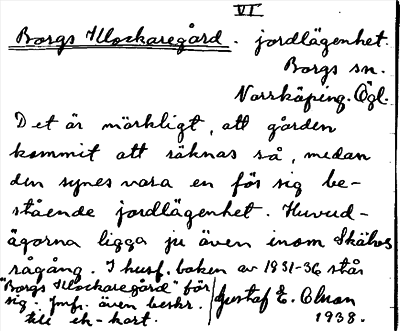 VI
Borgs Klockaregård. jordlägenhet.
Borgs sn.
Norrköping. Ögl.
Det är märkligt, att gården
kommit att räknas så, medan
den synes vara en för sig be-
stående jordlägenhet. Huvud-
ägorna ligga ju även inom Skälvs
rågång. I husf. boken av 1831-36 står
"Borgs Klockaregård" för
sig. Jmfr. även beskr.
till ek-kart.
Gustaf E. Olsson
1938.